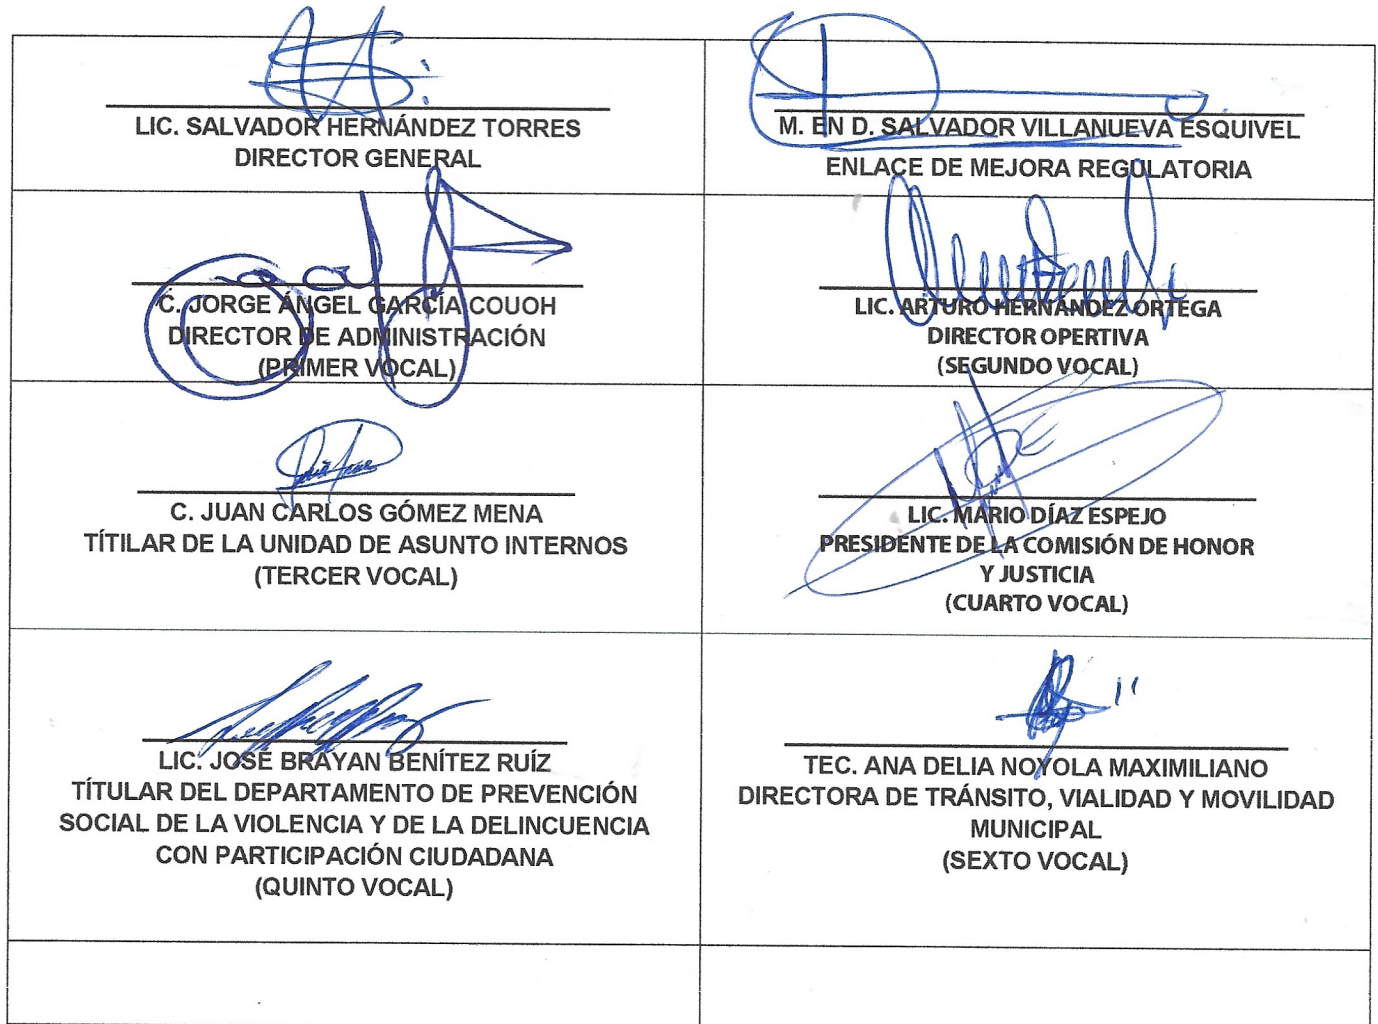 LIC. SALVADOR HERNÁNDEZ TORRES
DIRECTOR GENERAL
M. EN D. SALVADOR VILLANUEVA ESQUIVEL
ENLACE DE MEJORA REGULATORIA
C. JORGE ÁNGEL GARCÍA COUOH
DIRECTOR DE ADMINISTRACIÓN
(PRIMER VOCAL)
LIC. ARTURO HERNÁNDEZ ORTEGA
DIRECTOR OPERTIVA
(SEGUNDO VOCAL)
C. JUAN CARLOS GÓMEZ MENA
TÍTILAR DE LA UNIDAD DE ASUNTO INTERNOS
(TERCER VOCAL)
LIC. MARIO DÍAZ ESPEJO
PRESIDENTE DE LA COMISIÓN DE HONOR
Y JUSTICIA
(CUARTO VOCAL)
LIC. JOSÉ BRAYAN BENÍTEZ RUÍZ
TÍTULAR DEL DEPARTAMENTO DE PREVENCIÓN
SOCIAL DE LA VIOLENCIA Y DE LA DELINCUENCIA
CON PARTICIPACIÓN CIUDADANA
(QUINTO VOCAL)
TEC. ANA DELIA NOYOLA MAXIMILIANO
DIRECTORA DE TRÁNSITO, VIALIDAD Y MOVILIDAD
MUNICIPAL
(SEXTO VOCAL)